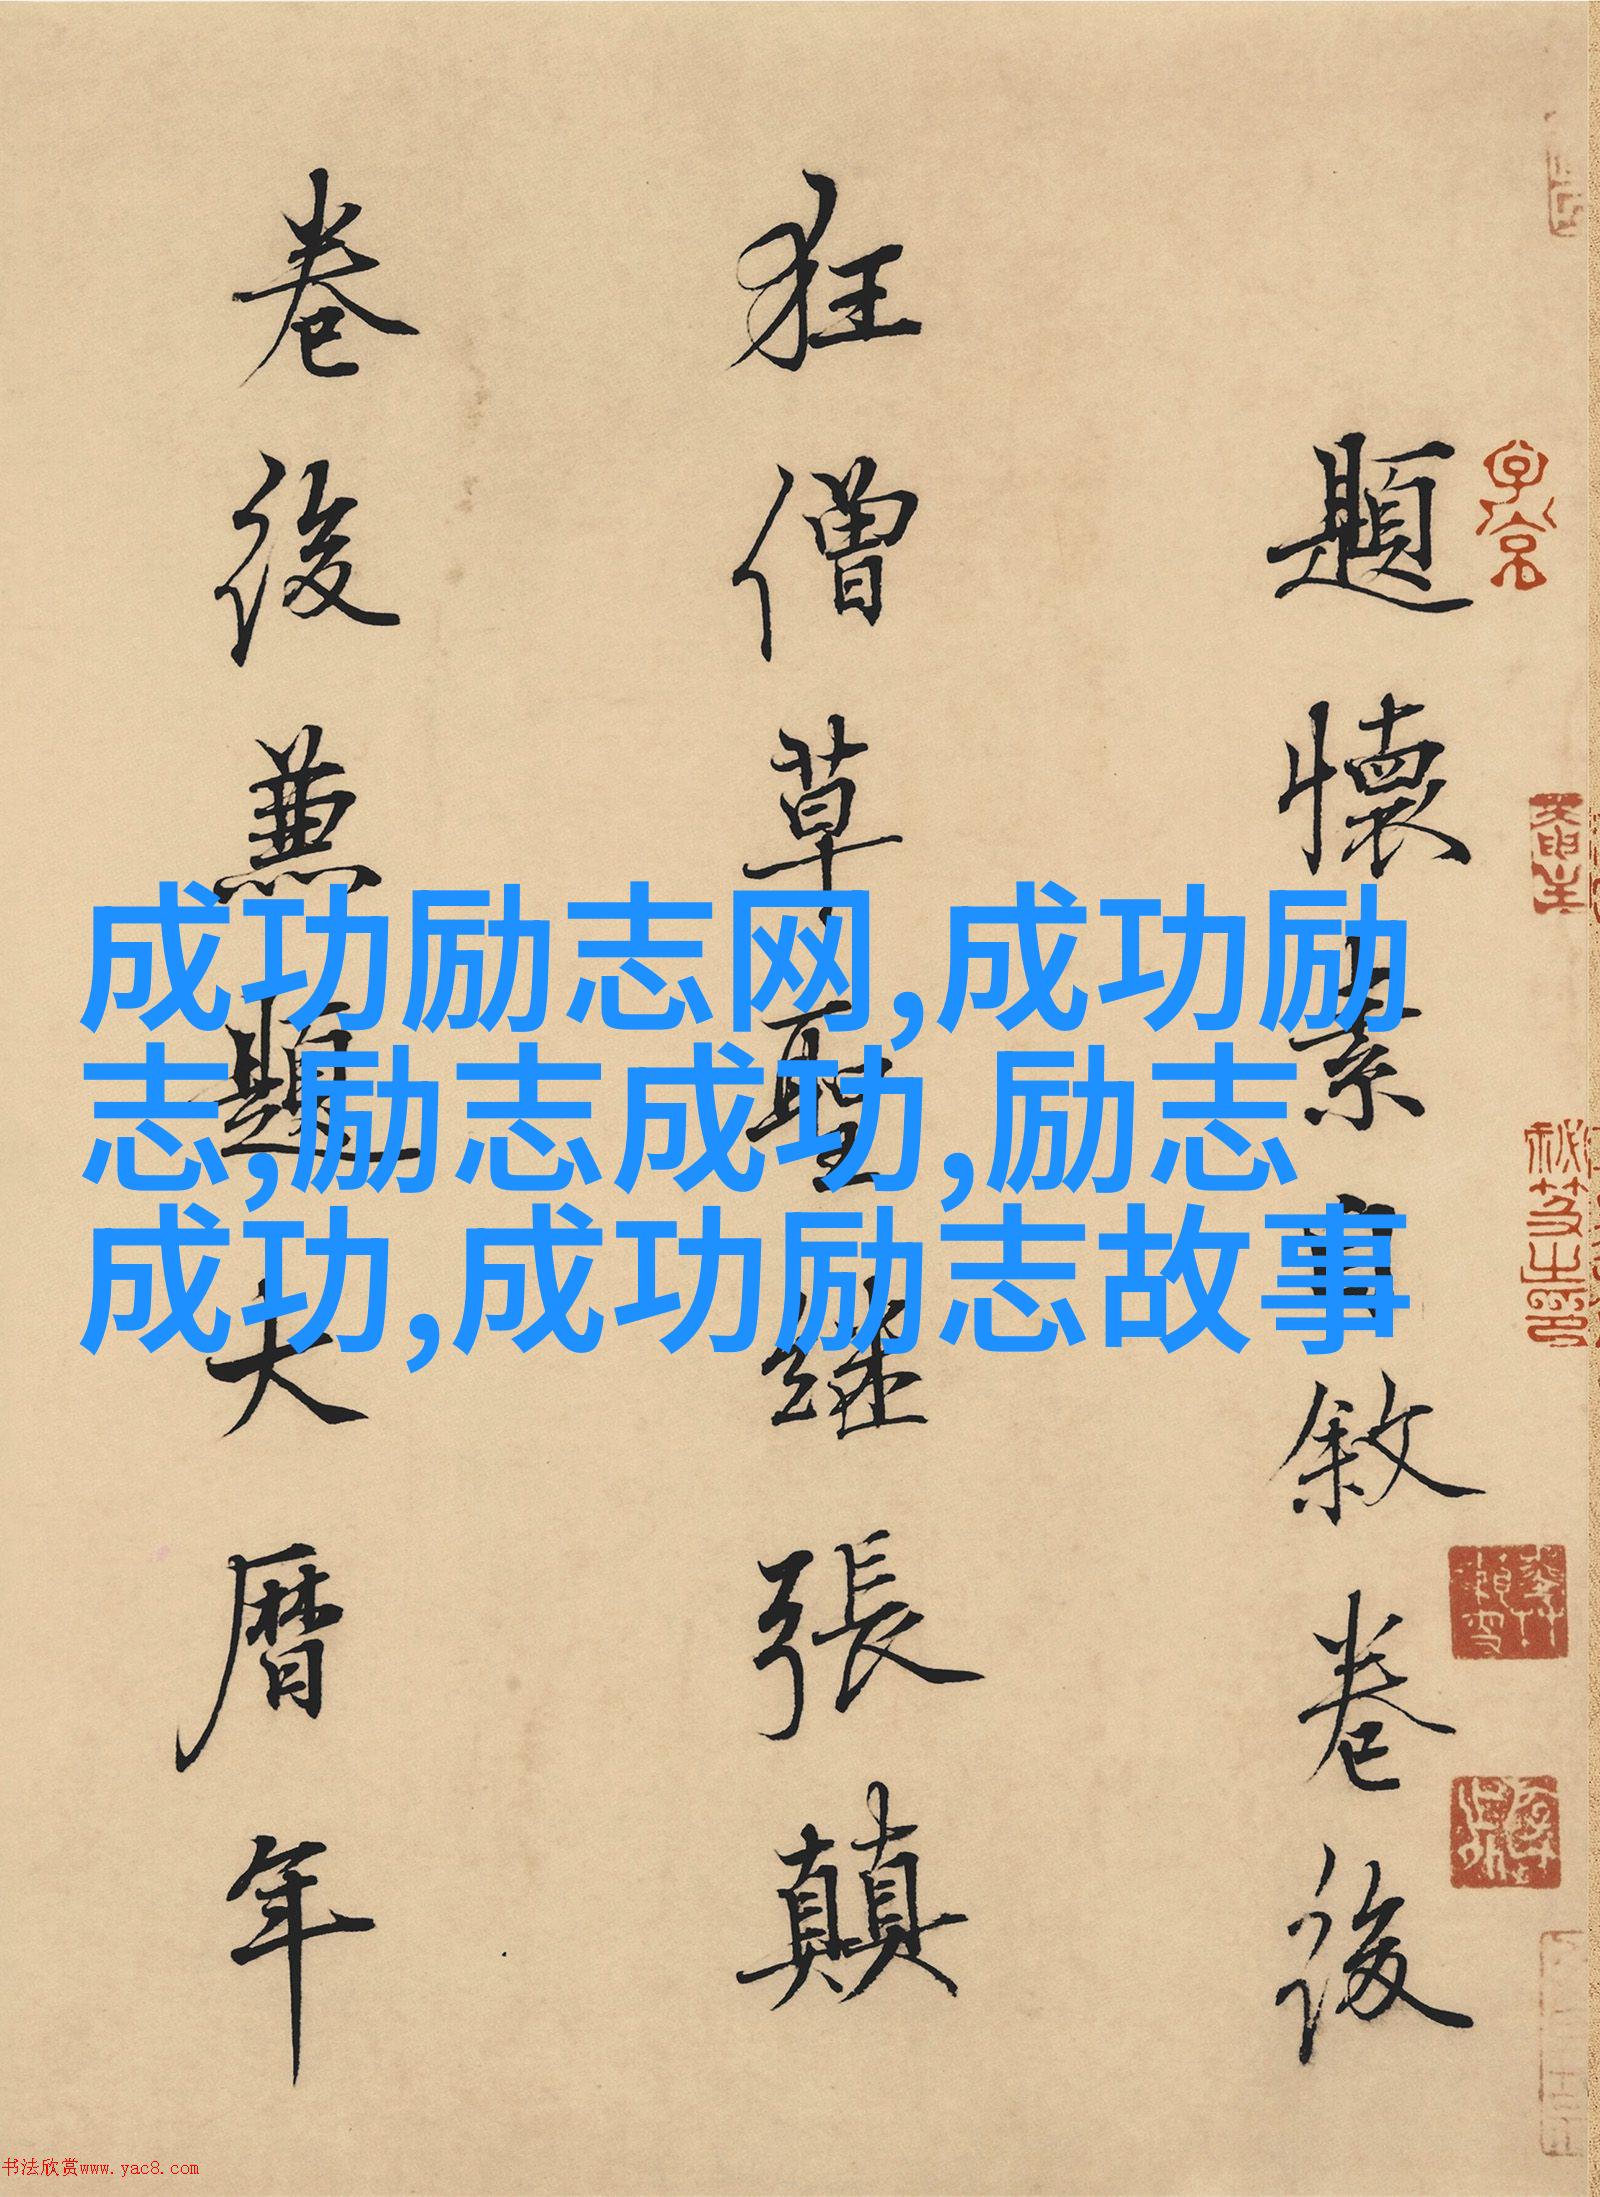 題懷素自敘卷後
狂僧草聖继張顛
卷後兼題大曆年
成功励志网,成功励
志,励志成功,励志
成功,成功励志故事
书法欣赏www.yac8.com